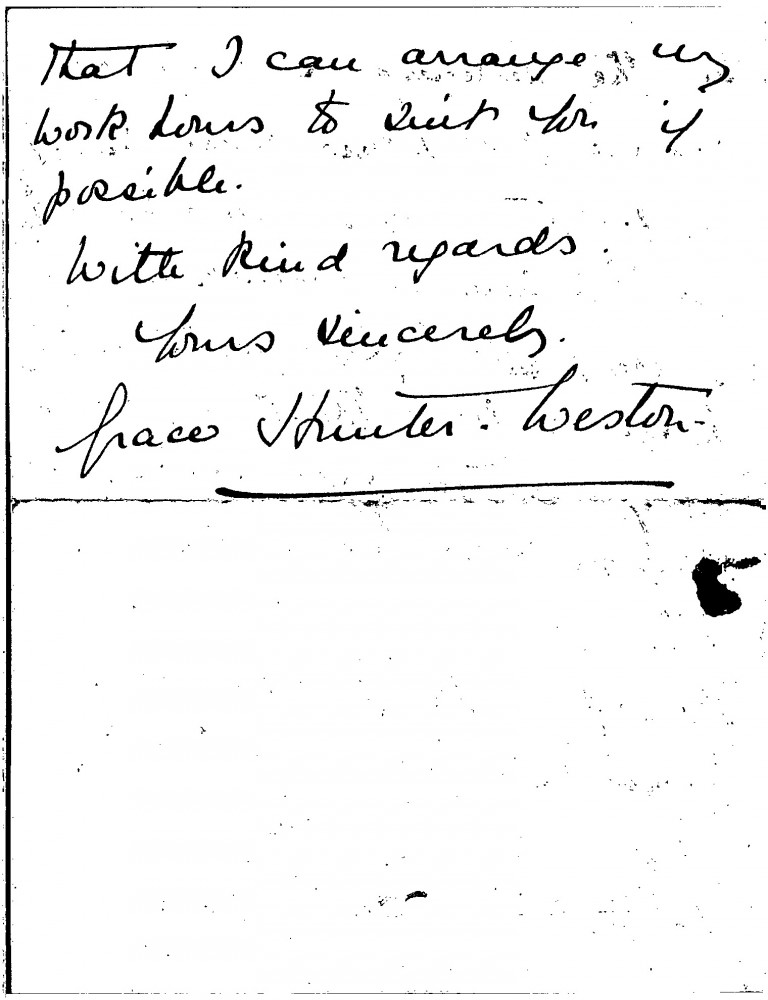 that I can arrange my
work hours to suit you if
possible.
With kind regards.
Yours sincerely.
Grace Hunter-Weston-